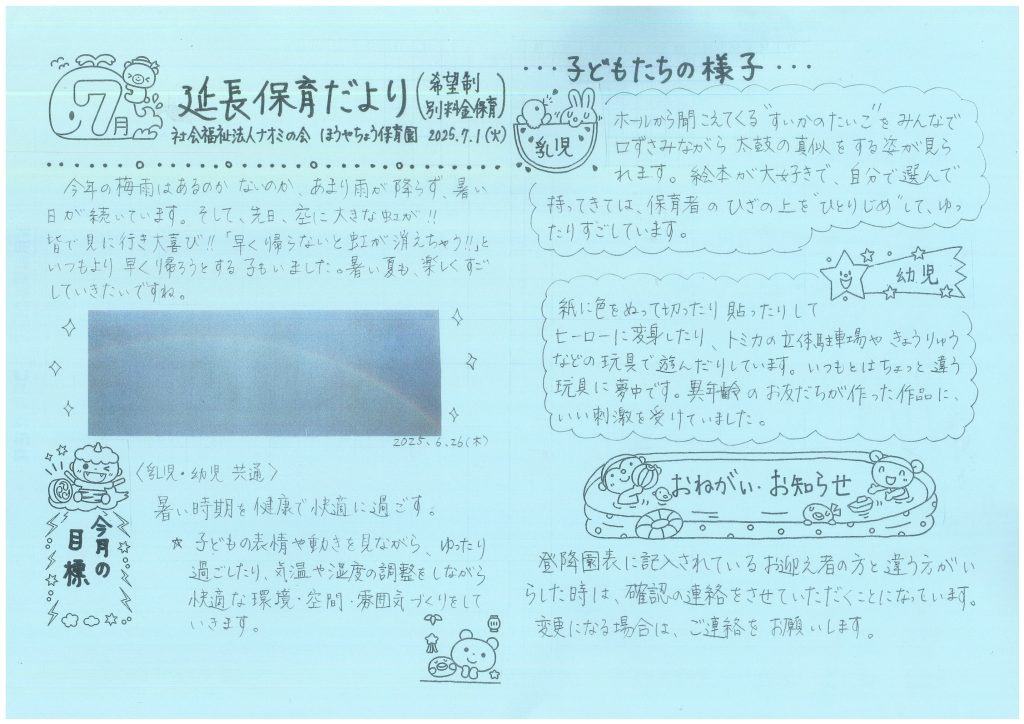 7月
延長保育だより(希望制 別料金保育)
社会福祉法人ナオミの会 ほうやちょう保育園 2025.7.1(火)
今年の梅雨はあるのか ないのか、あまり雨が降らず、暑い
日が続いています。そして、先日、空に大きな虹が!!
皆で見に行き大喜び!!「早く帰らないと虹が消えちゃう!!」と
いつもより早く帰ろうとする子もいました。暑い夏も、楽しくすご
していきたいですね。
2025.6.26(木)
今月の
目標
〈乳児・幼児 共通〉
暑い時期を健康で快適に過ごす。
☆ 子どもの表情や動きを見ながら、ゆったり
過ごしたり、気温や湿度の調整をしながら
快適な環境・空間・雰囲気づくりをして
いきます。
・・・子どもたちの様子・・・
乳児
ホールから聞こえてくる"すいかのたいこ"をみんなで
口ずさみながら 太鼓の真似をする姿が見ら
れます。絵本が大好きで、自分で選んで
持ってきては、保育者のひざの上を"ひとりじめ"して、ゆっ
たりすごしています。
幼児
紙に色をぬって切ったり 貼ったりして
ヒーローに変身したり、トミカの立体駐車場やきょうりゅう
などの玩具で遊んだりしています。いつもとはちょっと違う
玩具に夢中です。異年齢のお友だちが作った作品に、
いい刺激を受けていました。
おねがい・お知らせ
登降園表に記入されているお迎え者の方と違う方がい
らした時は、確認の連絡をさせていただくことになっています。
変更になる場合は、ご連絡をお願いします。